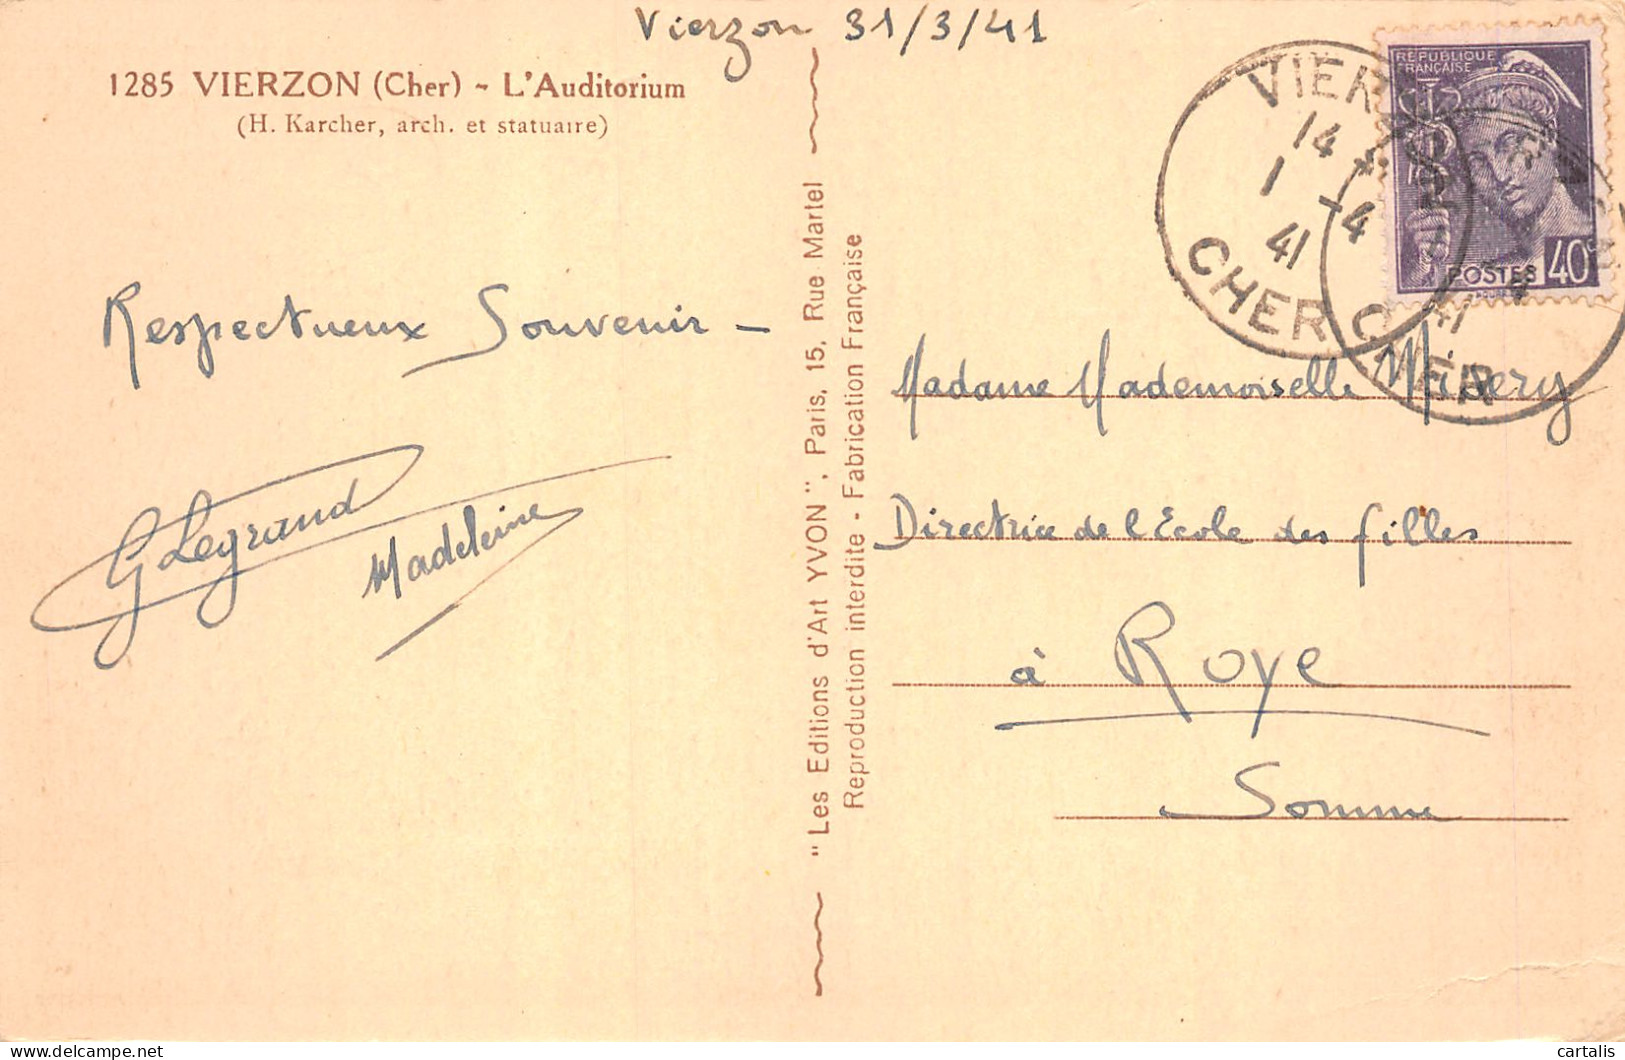 Vierzon 31/3/41
1285 VIERZON (Cher) - L'Auditorium
(H. Karcher, arch. et statuaire)
Respectueux Souvenir -
G Legrand
Madeleine
"Les Editions d'Art YVON", Paris, 15, Rue Martel
Reproduction interdite - Fabrication Française
RÉPUBLIQUE
FRANÇAISE
POSTES 40c
14
1 -4
41
CHER
41
CHER
Madame Mademoiselle Misery
Directrice de l'Ecole des filles
à Roye
Somme
cartalis